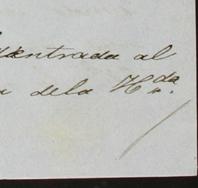 entrada al
a dela Hda.